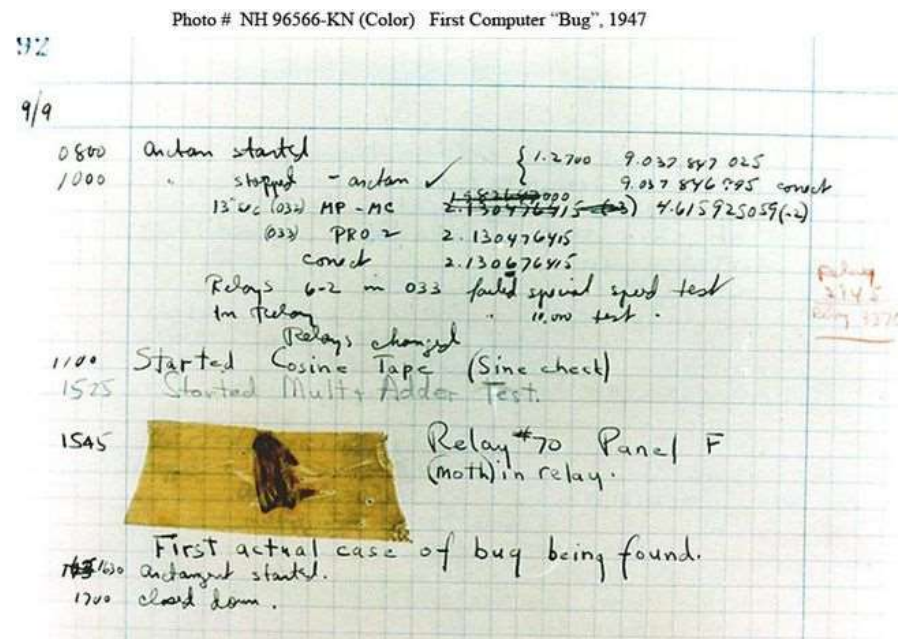 Photo # NH 96566-KN (Color) First Computer “Bug”, 1947
92
9/9
0800 antan started { 1.2700 9.037 847 025
1000 " stopped - antan ✓ 9.037 846 795 conect
13" sec (032) MP - MC 2.130476415 (-3) 4.615925059(-2)
(033) PRO 2 2.130476415
conect 2.130676415
Relays 6-2 in 033 failed special speed test
In Relay " 10,000 test .
Relay
2145
Relay 3370
Relays changed
1100 Started Cosine Tape (Sine check)
1525 Started Mult + Adder Test.
1545 Relay #70 Panel F
(moth) in relay.
First actual case of bug being found.
1630 antangent started.
1700 closed down.